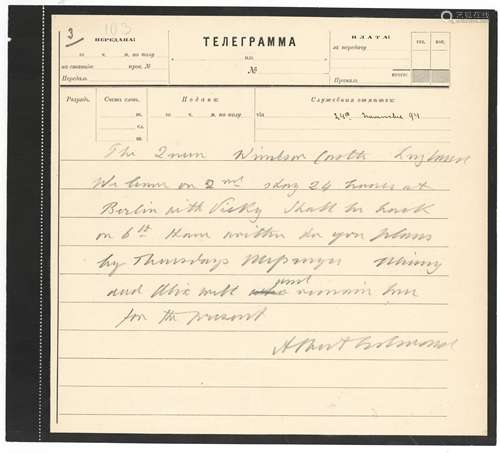 3
103
ПЕРЕДАНА:
го ч. м. по полу
на станцію пров. №
Передалъ
ТЕЛЕГРАММА
изъ
№
ПЛАТА:
за передачу
руб. коп.
ИТОГО:
Принялъ
Разрядъ. Счетъ словъ. Подана: Служебныя отмѣтки:
го ч. м. по полу via
24º November 94
The Queen Windsor Castle England
We leave on 2nd stay 24 hours at
Berlin with Vicky Shall be back
on 6th Have written do you plans
by Thursdays Messenger Minny
and Alix will remain here
for the present
Albert Edward